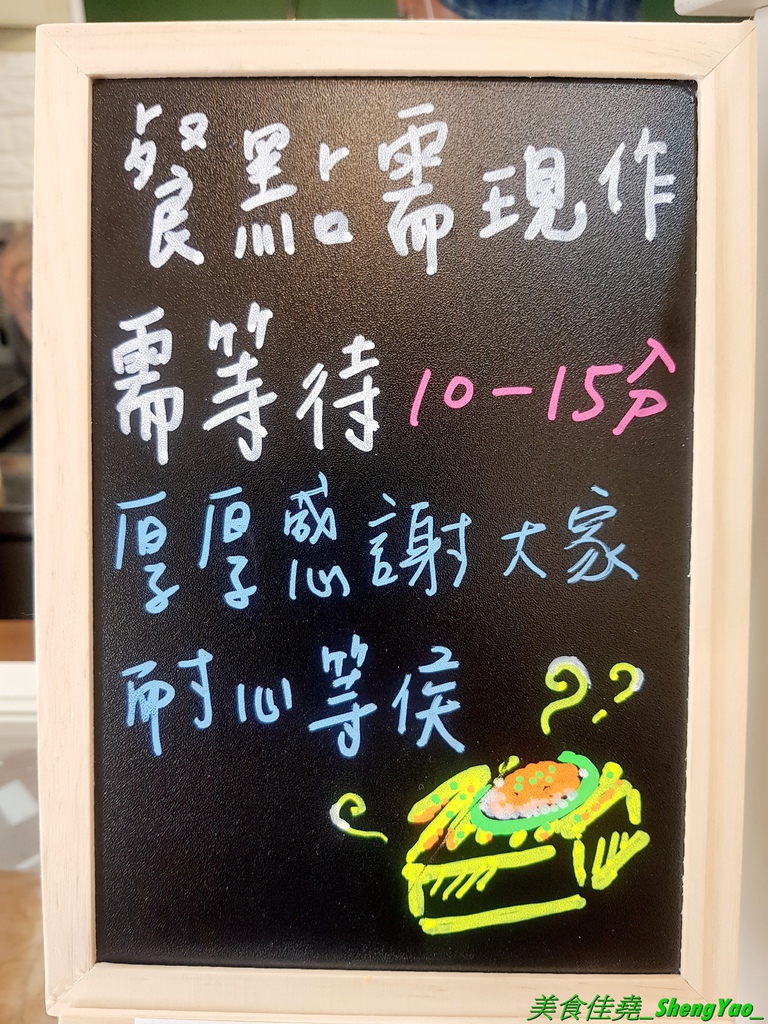 餐點需現作
需等待10-15分
厚厚感謝大家
耐心等侯
??
美食佳堯_ShengYao_